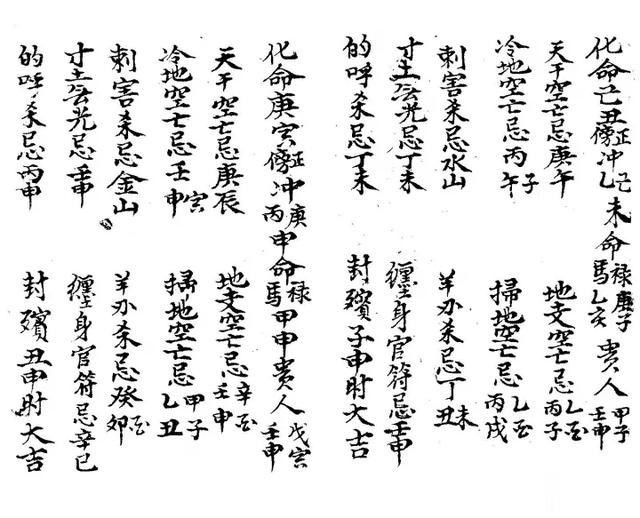 化命己丑正傍冲己乙未命禄庚子馬乙亥貴人甲子壬申
天干空亡忌庚午 地支空亡忌乙亥丙子
冷地空亡忌丙子午 掃地空亡忌乙亥丙戌
刺害杀忌水山 羊刃杀忌丁未丑
寸土無光忌丁未 纏身官符忌壬申
的呼杀忌丁未 封殯子申时大吉
化命庚寅正傍冲庚丙申命禄馬甲申貴人戊寅壬申
天干空亡忌庚辰 地支空亡忌辛亥壬申
冷地空亡忌壬寅申 掃地空亡忌甲子乙丑
刺害杀忌金山 羊刃杀忌癸酉卯
寸土無光忌壬申 纏身官符忌辛巳
的呼杀忌丙申 封殯丑申时大吉